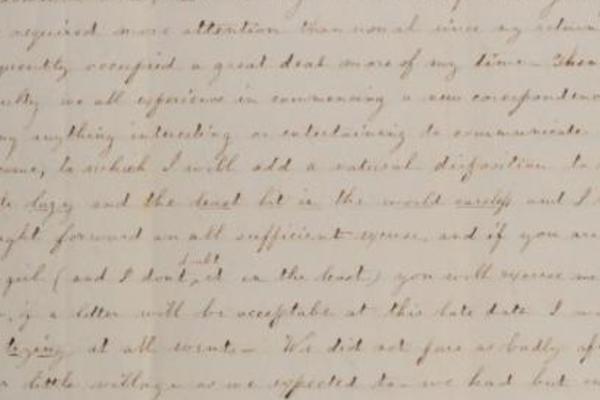 required more attention than usual since my return
occupied a great deal more of my time - Then
we all experience in commencing a new correspondence
anything interesting or entertaining to communicate
to which I will add a natural disposition to
lazy and the least bit in the world careless and I
forward an all sufficient excuse, and if you are
girl (and I dont doubt it in the least) you will excuse me
if a letter will be acceptabe at this late date I
trying at all events - We did not fare as badly
little village as we expected to - we had but